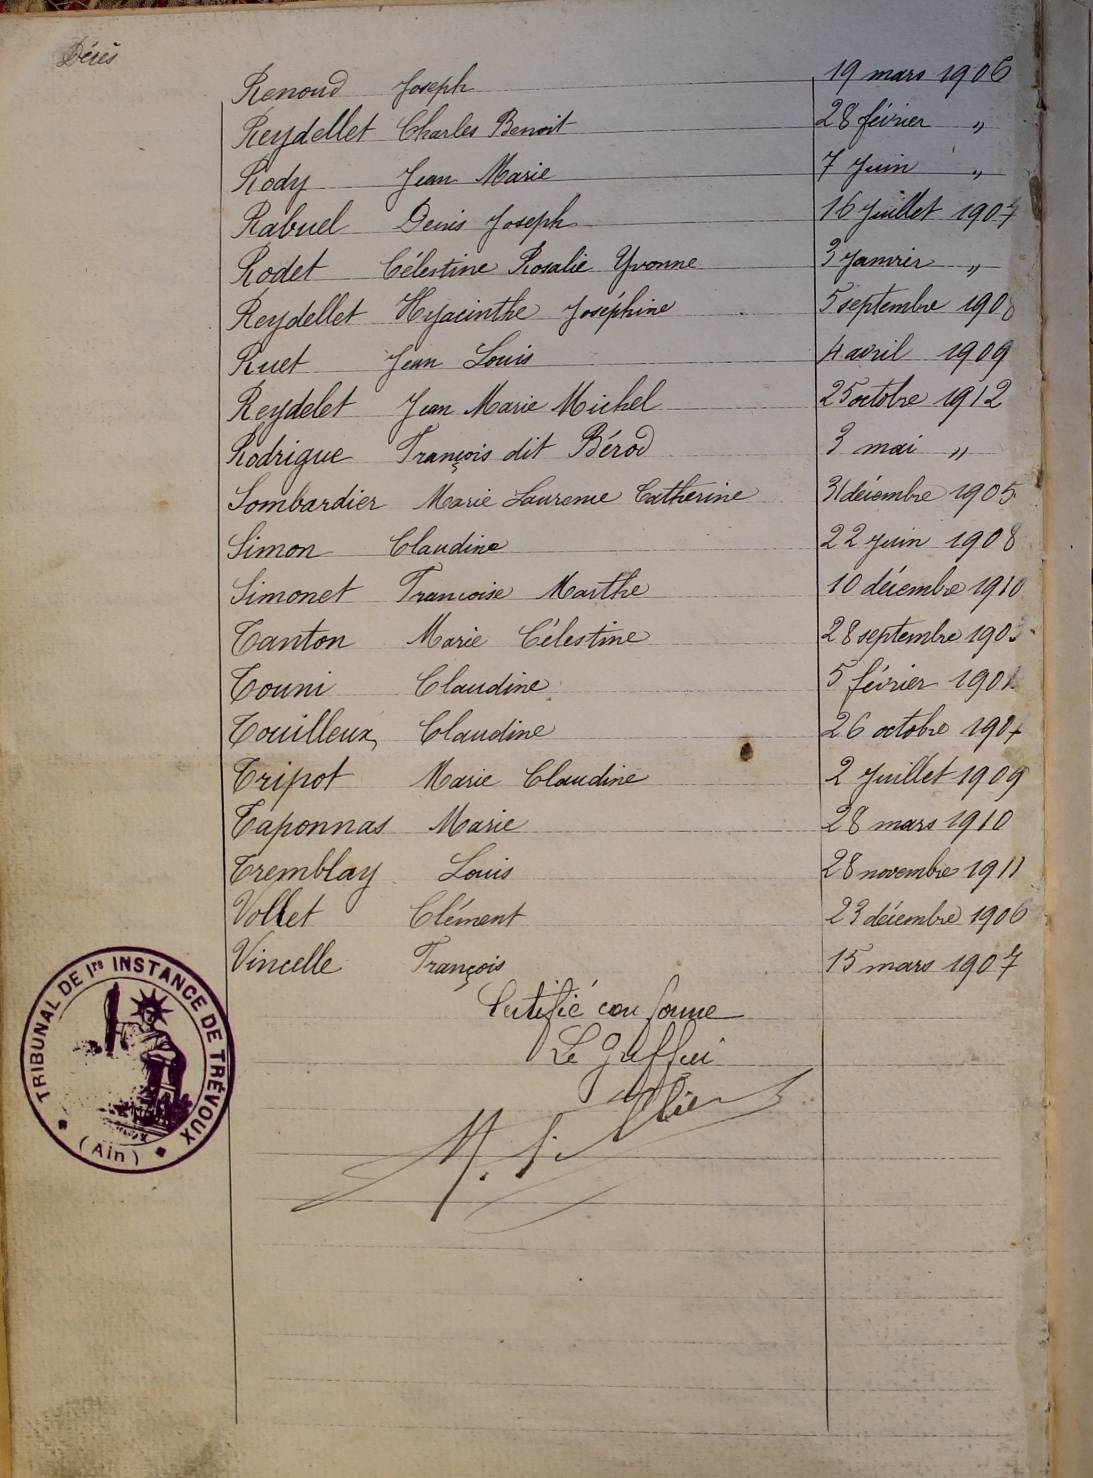 Décès
Renoud Joseph 19 mars 1906
Reydellet Charles Benoit 28 février "
Rody Jean Marie 7 Juin "
Rabuel Denis Joseph 16 Juillet 1907
Rodet Célestine Rosalie Yvonne 3 Janvier "
Reydellet Hyacinthe Joséphine 5 septembre 1908
Ruet Jean Louis 4 avril 1909
Reydelet Jean Marie Michel 25 octobre 1912
Rodrigue François dit Bérod 3 mai "
Sombardier Marie Laurence Catherine 31 décembre 1905
Simon Claudine 22 Juin 1908
Simonet Francoise Marthe 10 décembre 1910
Tanton Marie Célestine 28 septembre
Touni Claudine 5 février
Touilleux Claudine 26 octobre
Tripot Marie Claudine 2 Juillet 1909
Taponnas Marie 28 mars 1910
Tremblay Louis 28 novembre 1911
Vollet Clément 23 décembre 1906
Vincelle François 15 mars 1907
Certifié conforme
Le Greffier
TRIBUNAL DE 1re INSTANCE DE TRÉVOUX
(Ain)